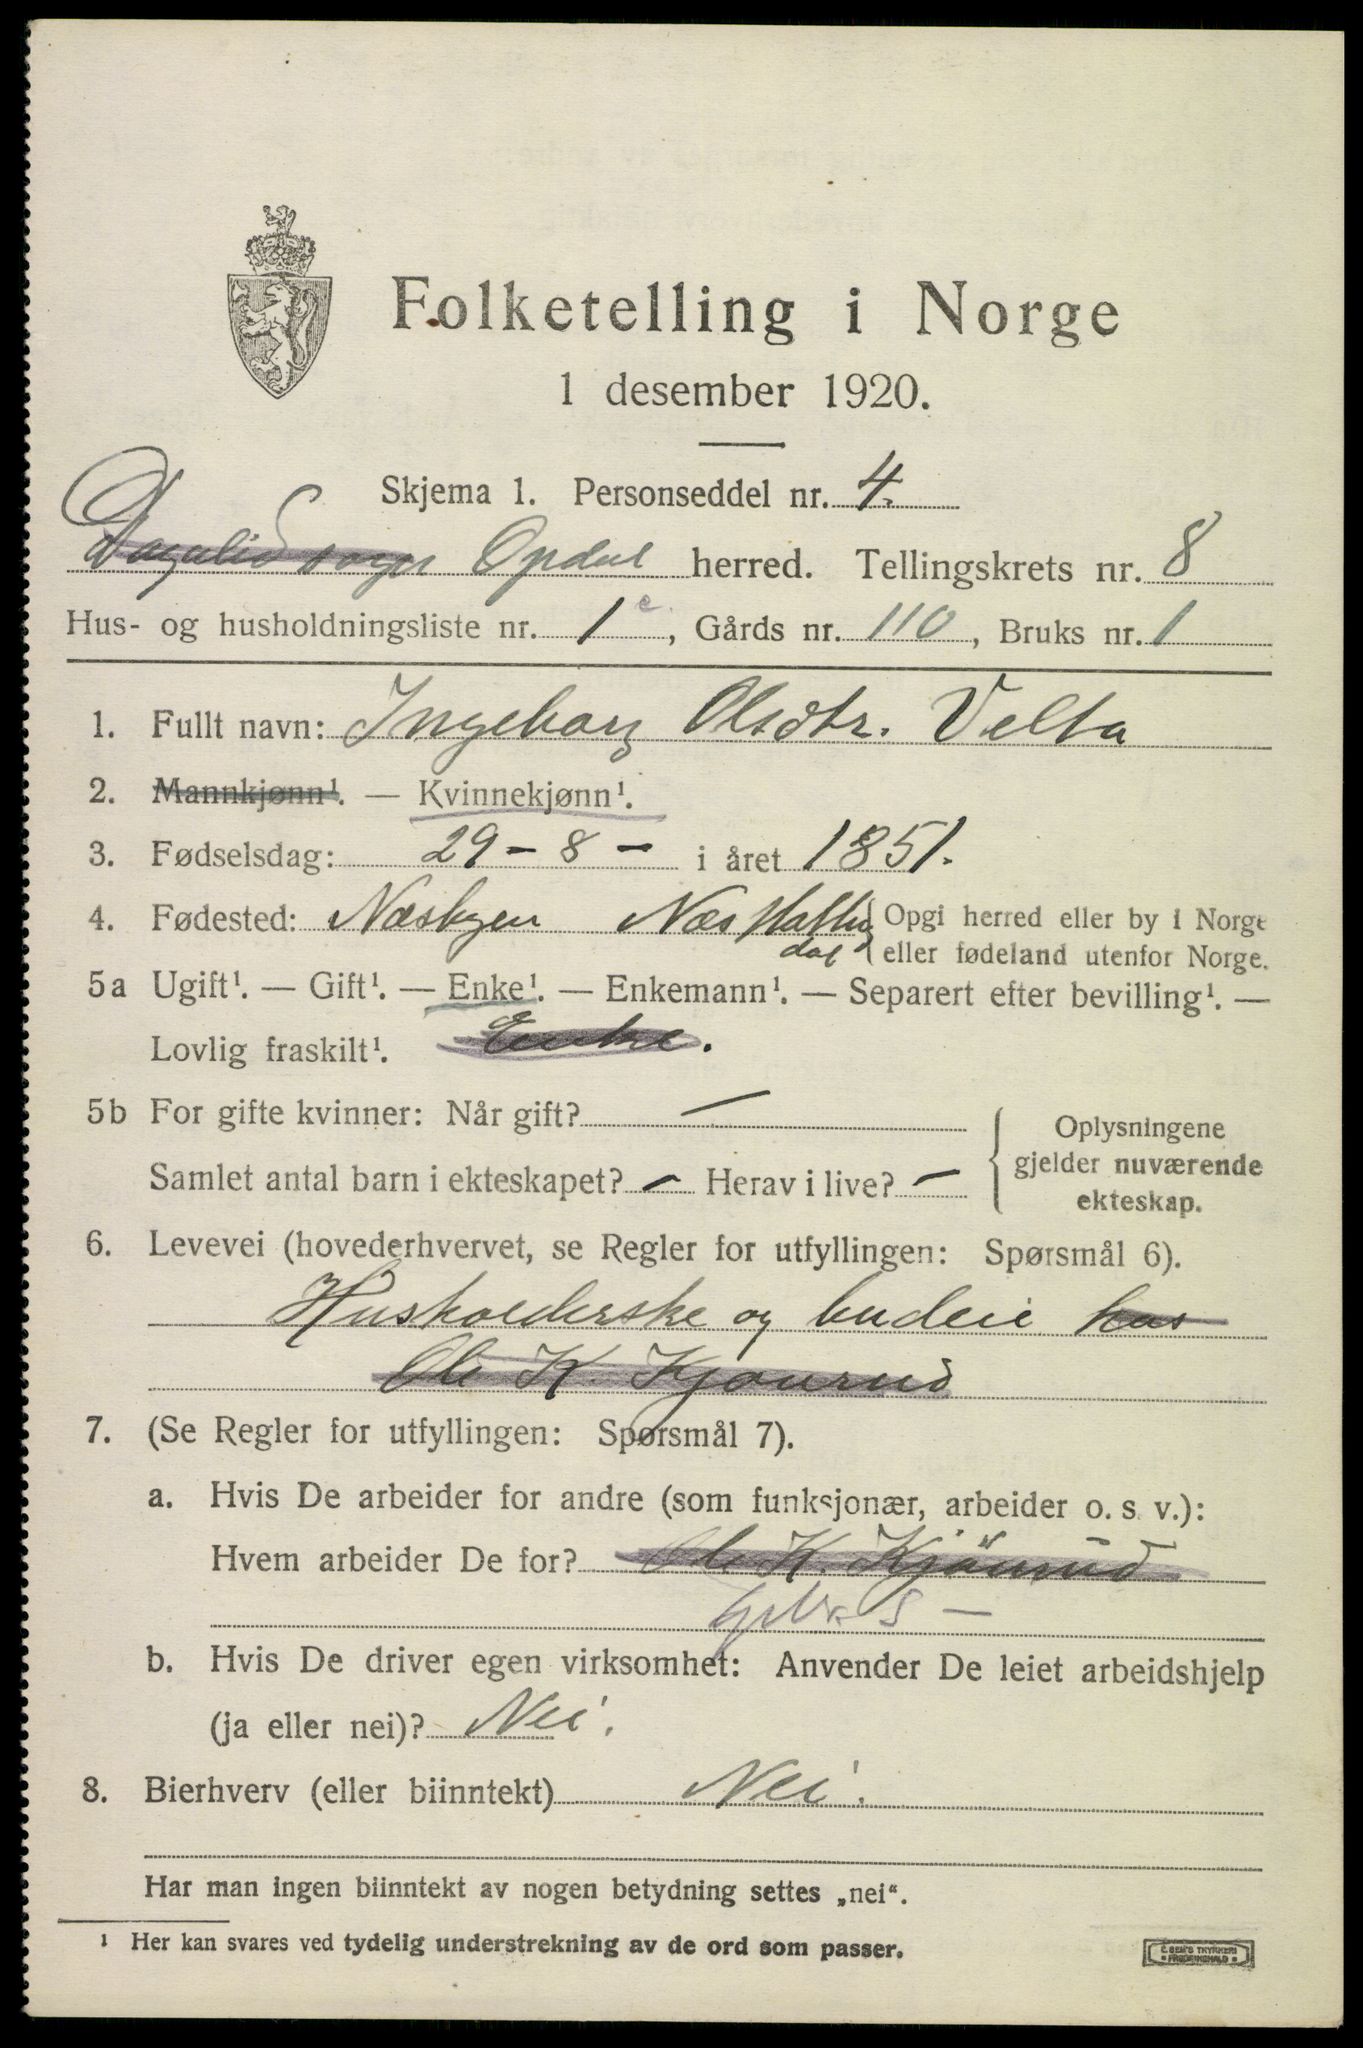 Folketelling i Norge
1 desember 1920.
Skjema 1. Personseddel nr. 4.
Opdal herred. Tellingskrets nr. 8
Hus- og husholdningsliste nr. 1 c, Gårds nr. 110, Bruks nr. 1
1. Fullt navn: Ingeborg Olsdtr. Velta
2. Mannkjønn¹. — Kvinnekjønn¹.
3. Fødselsdag: 29 – 8 – i året 1851.
4. Fødested: Næsbyen Næs Opgi herred eller by i Norge
dal eller fødeland utenfor Norge.
5a Ugift¹. — Gift¹. — Enke¹. — Enkemann¹. — Separert efter bevilling¹. —
Lovlig fraskilt¹. Enke.
5b For gifte kvinner: Når gift? —
Samlet antal barn i ekteskapet? — Herav i live? —
Oplysningene
gjelder nuværende
ekteskap.
6. Levevei (hovederhvervet, se Regler for utfyllingen: Spørsmål 6).
Husholderske og budeie hos
Ole K. Kjønrud
7. (Se Regler for utfyllingen: Spørsmål 7).
a. Hvis De arbeider for andre (som funksjonær, arbeider o. s. v.):
Hvem arbeider De for? Ole K. Kjönrud
b. Hvis De driver egen virksomhet: Anvender De leiet arbeidshjelp
(ja eller nei)? Nei.
8. Bierhverv (eller biinntekt) Nei.
Har man ingen biinntekt av nogen betydning settes „nei“.
¹ Her kan svares ved tydelig understrekning av de ord som passer.